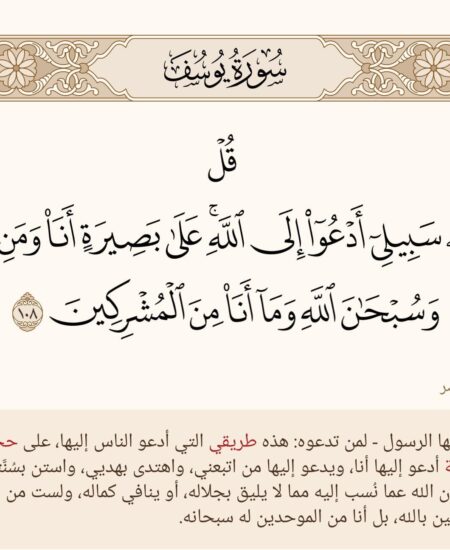 سُورَةُ يُوسُفَ
قُلۡ
سَبِيلِيٓ أَدۡعُوٓاْ إِلَى ٱللَّهِۚ عَلَىٰ بَصِيرَةٍ أَنَا۠ وَمَنِ
وَسُبۡحَٰنَ ٱللَّهِ وَمَآ أَنَا۠ مِنَ ٱلۡمُشۡرِكِينَ ١٠٨
ها الرسول - لمن تدعوه: هذه طريقي التي أدعو الناس إليها، على
أدعو إليها أنا، ويدعو إليها من اتبعني، واهتدى بهديي، واستن
الله عما نُسب إليه مما لا يليق بجلاله، أو ينافي كماله، ولست من
ين بالله، بل أنا من الموحدين له سبحانه.